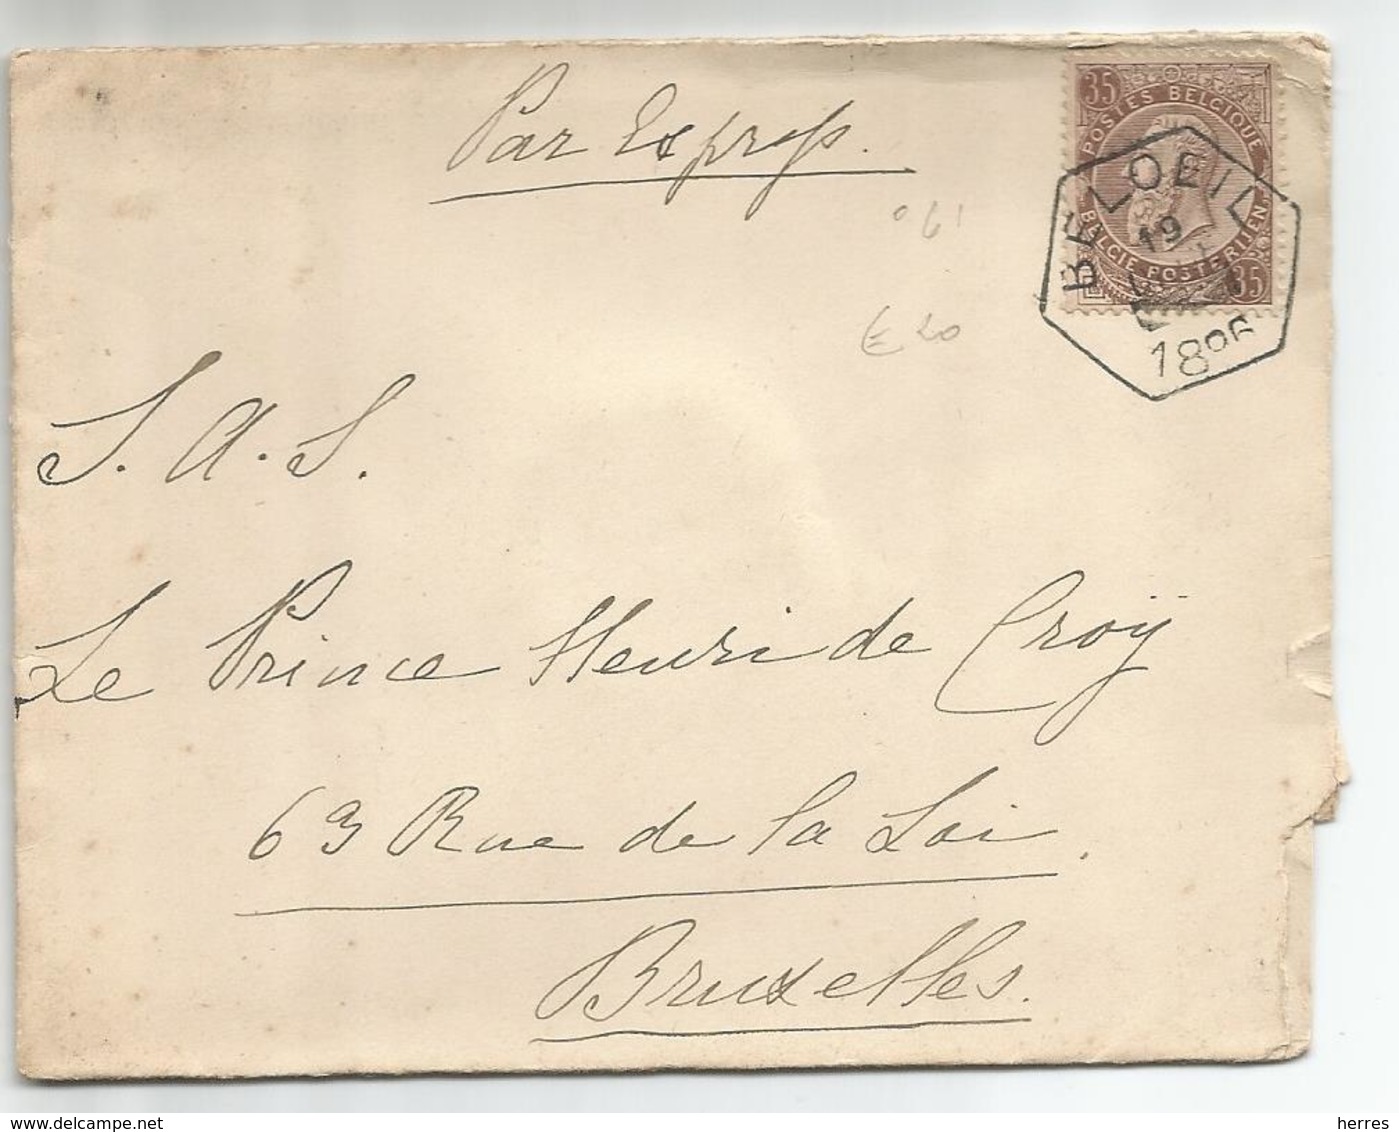 Par Express.
35
POSTES BELGIQUE
BELGIE POSTERIJEN
35
BELOEIL
19
1896
61
€ 20
S. A. S.
Le Prince Henri de Croÿ
63 Rue de la Loi.
Bruxelles.
www.delcampe.net
herres